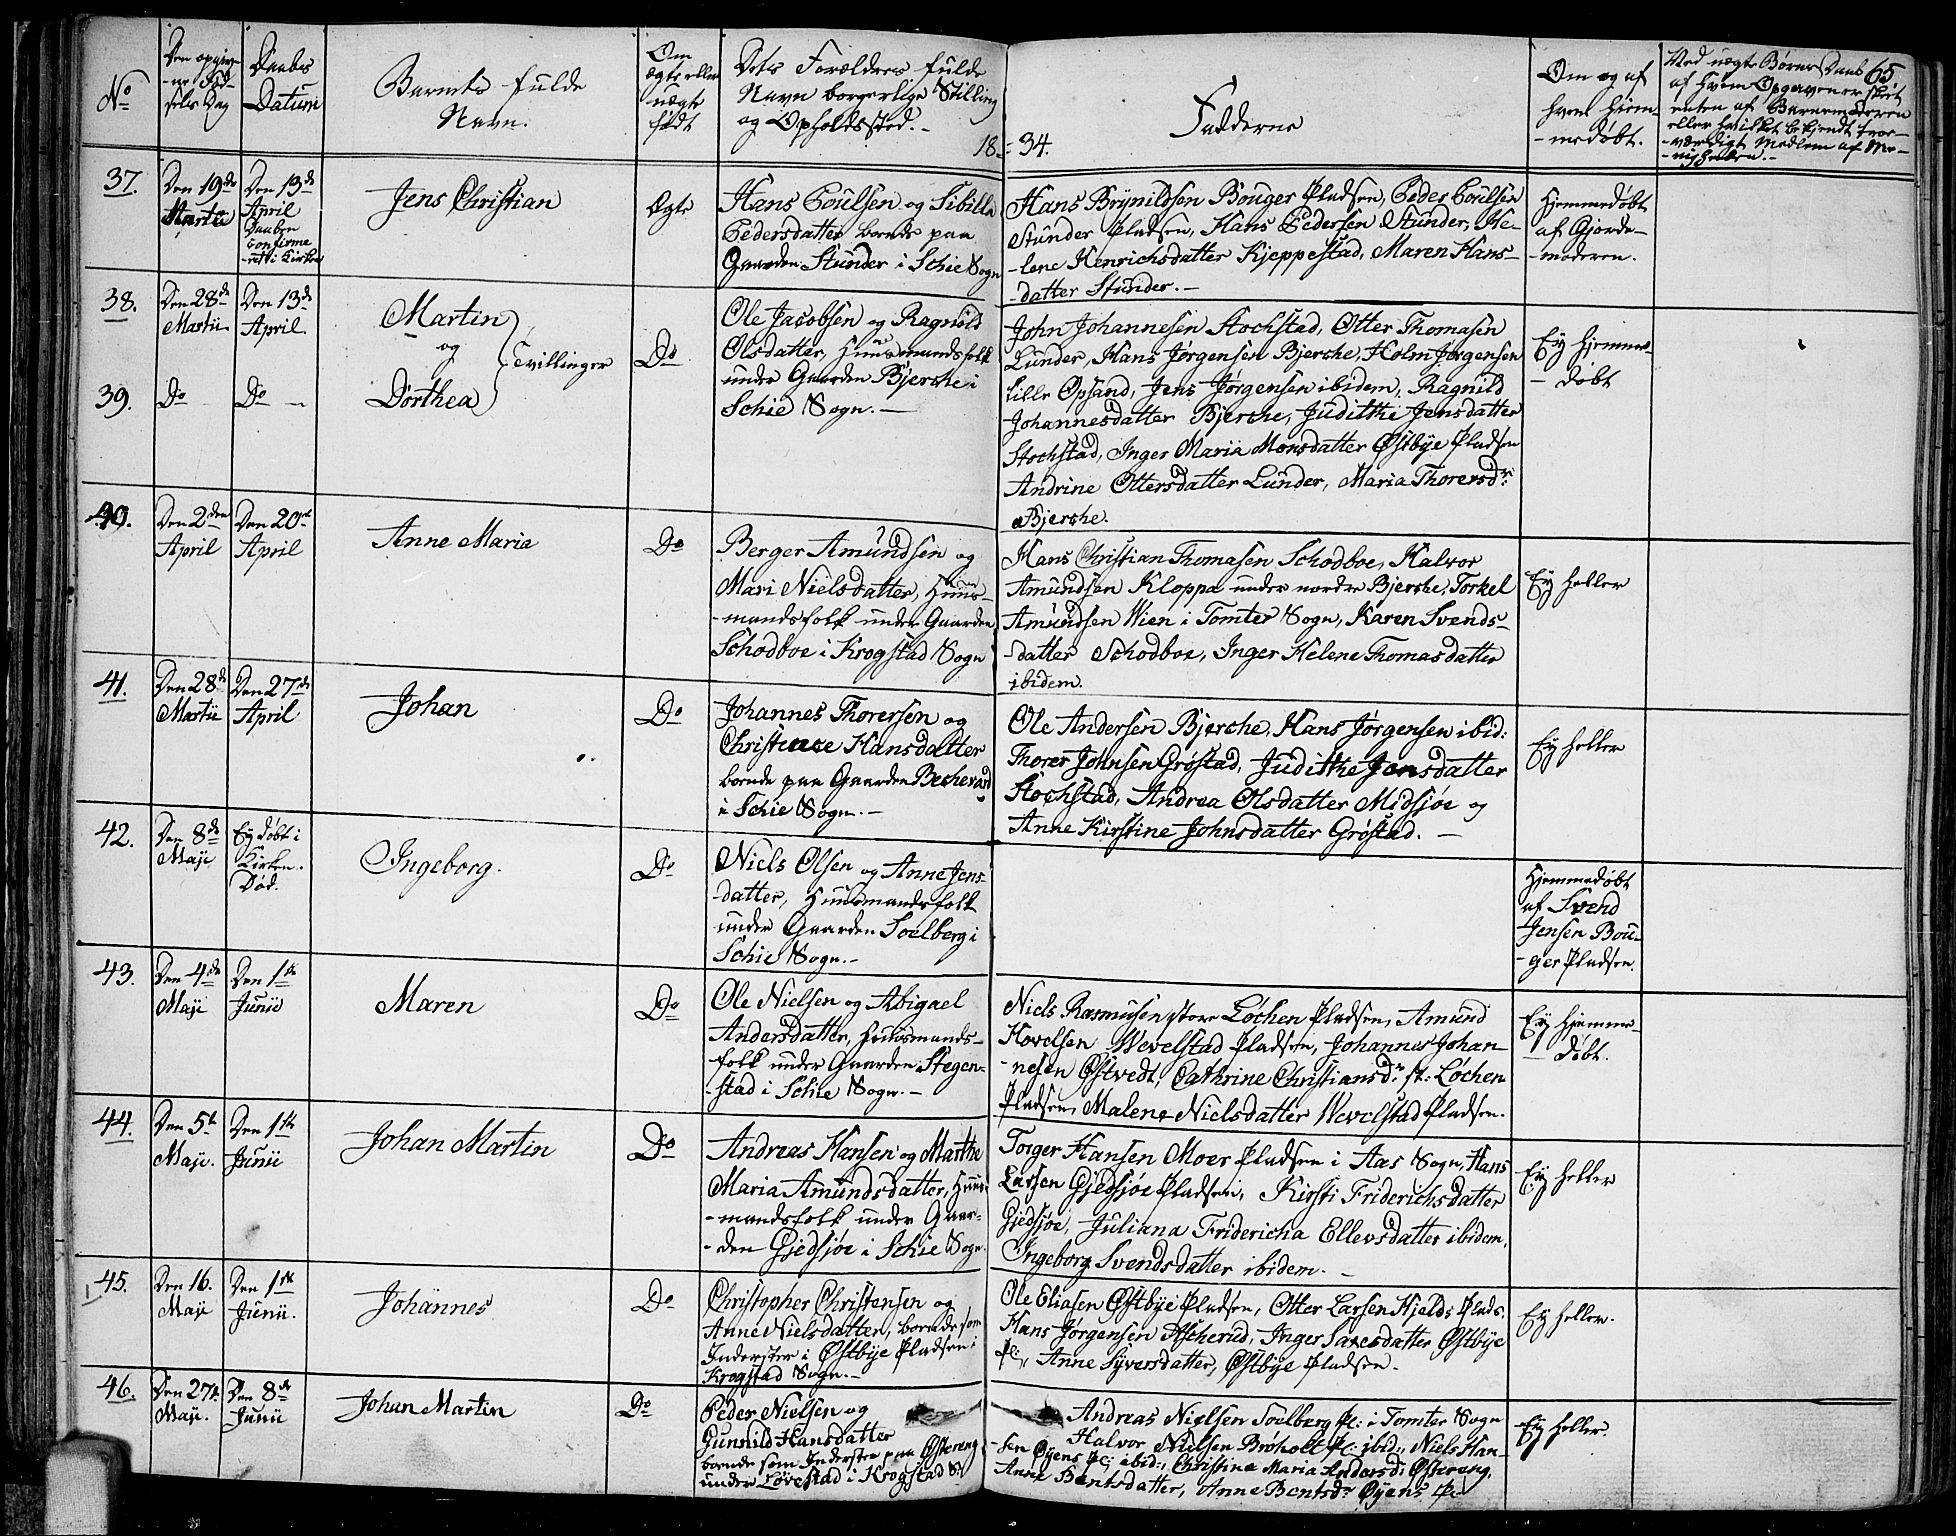 No
Den opgiv-
-ne Fød-
sels Dag
Daabs
Datum
Barnets fulde
Navn.
Om
ægte eller
uægte
født
Dets Forældres fulde
Navn borgerlige Stilling
og Opholdssted.
18
34.
Fadderne
Om og af
hvem hjem-
-medøbt.
Ved uægte Børns Daab
af hvem Opgaven er skeet
enten af Barnemoderen
eller hvilket bekjendt troe-
-værdigt Medlem af Me-
-nigheden.
65
37.
Den 19de
Martii
Den 13de
April
Daaben
confirme
-ret i Kirken
Jens Christian
Ægte
Hans Poulsen og Sibilla
Pedersdatter boende paa
Gaarden Stunder i Schie Sogn
Hans Brynildsen Bouger Pladsen, Peder Poulsen
Stunder Pladsen, Hans Pedersen Stunder, He-
-lene Henrichsdatter Kjeppestad, Maren Hans-
-datter Stunder.
Hjemmedøbt
af Gjorde-
-moderen.
38.
Den 28de
Martii
Den 13de
April
Martin
og
Tvillinger
Do
Ole Jacobsen og Ragnild
Olsdatter, Huusmandsfolk
under Gaarden Bjerche i
Schie Sogn.
John Johannesen Stochstad, Otter Thomasen
Lunder, Hans Jørgensen Bjerche, Holm Jørgensen
Lille Opsand, Jens Jørgensen ibidem, Ragnild
Johannesdatter Bjerche, Judithe Jensdatter
Stochstad, Inger Maria Monsdatter Østbÿe Pladsen
Andrine Ottersdatter Lunder, Maria Thorersdr:
Bjerche.
Ey hjemme-
-døbt
39.
Do
Do
Dorthea
40.
Den 2den
April
Den 20de
April
Anne Maria
Do
Berger Amundsen og
Mari Nielsdatter, Huus-
-mandsfolk under Gaarden
Schodboe i Krogstad Sogn
Hans Christian Thomasen Schodboe, Halvor
Amundsen Kloppa under nordre Bjerche, Torkel
Amundsen Wien i Tomter Sogn, Karen Svends-
-datter Schodboe, Inger Helene Thomasdatter
ibidem.
Ey heller
41.
Den 28de
Martii
Den 27de
April
Johan
Do
Johannes Thorersen og
Christence Hansdatter
boende paa Gaarden Bechevad
i Schie Sogn.
Ole Andersen Bjerche, Hans Jørgensen ibid:
Thorer Johnsen Grøstad, Judithe Jensdatter
Stochstad, Andrea Olsdatter Midsjøe og
Anne Kirstine Johnsdatter Grøstad.
Ey heller
42.
Den 8de
Maji
Ey døbt i
Kirken.
Død.
Ingeborg.
Do
Niels Olsen og Anne Jens-
-datter, Huusmandsfolk
under Gaarden Soelberg i
Schie Sogn.
Hjemmedøbt
af Svend
Jensen Bou-
-ger Pladsen.
43.
Den 4de
Maji
Den 1ste
Junii
Maren
Do
Ole Nielsen og Abigael
Andersdatter, Huusmands-
-folk under Gaarden Stegen-
-stad i Schie Sogn.
Niels Rasmusen store Løchen Pladsen, Amund
Hovelsen Wevelstad Pladsen, Johannes Johan-
-nesen Østvedt, Cathrine Christiansdr: st: Løchen
Pladsen, Malene Nielsdatter Wevelstad Pladsen.
Ey hjemme-
-døbt.
44.
Den 5te
Maji.
Den 1ste
Junii
Johan Martin
Do
Andreas Hansen og Marthe
Maria Amundsdatter, Huus-
-mandsfolk under Gaar-
-den Gjedsjøe i Schie Sogn.
Torger Hansen Moer Pladsen i Aas Sogn, Hans
Larsen Gjedsjøe Pladsen, Kirsti Friderichsdatter
Gjedsjøe, Juliana Fridericha Ellevsdatter ibidem,
Ingeborg Svendsdatter ibidem.
Ey heller
45.
Den 16.
Maji
Den 1ste
Junii.
Johannes
Do
Christopher Christensen og
Anne Nielsdatter, boende som
Inderster i Østbÿe Pladsen i
Krogstad Sogn.
Ole Eliasen Østbÿe Pladsen, Otter Larsen Hjelds Plads.
Hans Jørgensen Ascherud, Inger Larsdatter Østbÿe
Pl:, Anne Syversdatter, Østbÿe Pladsen.
Ey heller.
46.
Den 27de
Maji.
Den 8de
Junii
Johan Martin
Do
Peder Nielsen og
Gunnild Hansdatter
boende som Inderster paa Østereng
under Løvestad i Krogstad S:
Andreas Nielsen Soelberg Pl: i Tomter Sogn
Halvor Nielsen Brøholt Pl: ibid:, Niels Han-
-sen Øyens Pl: ibid:, Christine Maria Andersd: Østereng,
Anne Bentsdatter, Anne Bentsdr. Øyens Pl:
Ey heller.